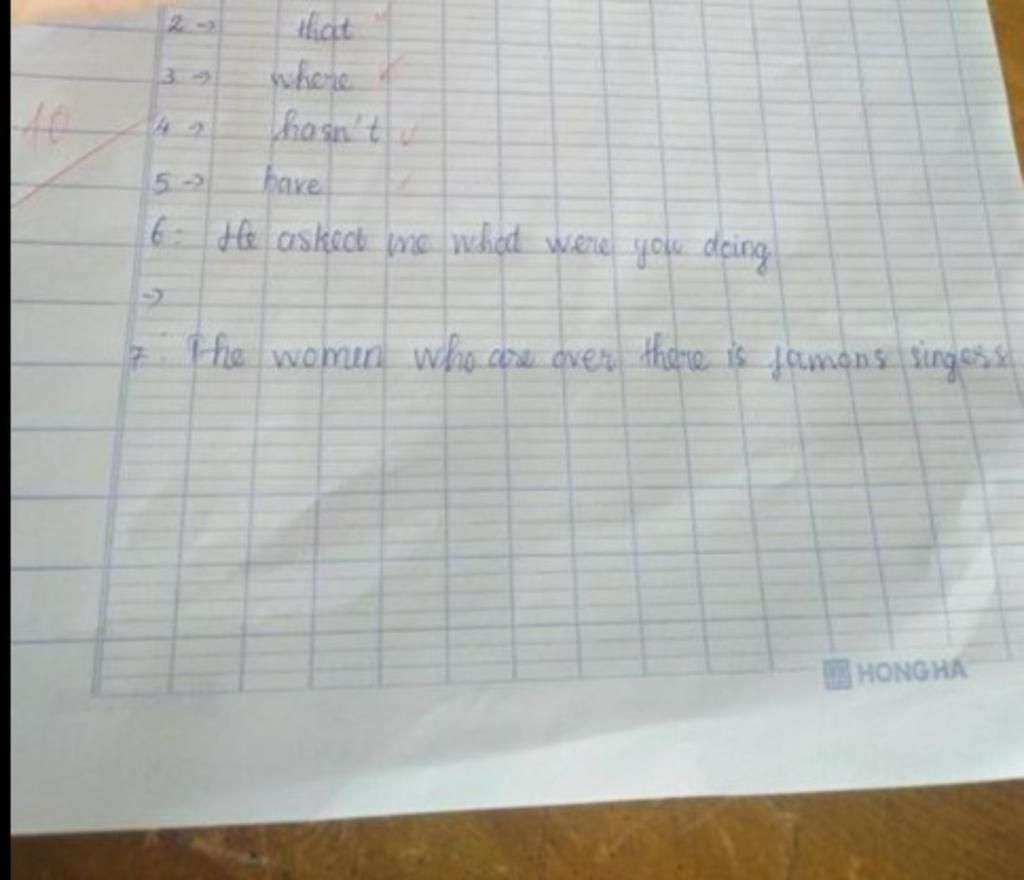 2 → that
3 → where
10
4 → hasn't
5 → have
6: He asked me what were you doing
→
7: The women who are over there is famous singers
HONG HA